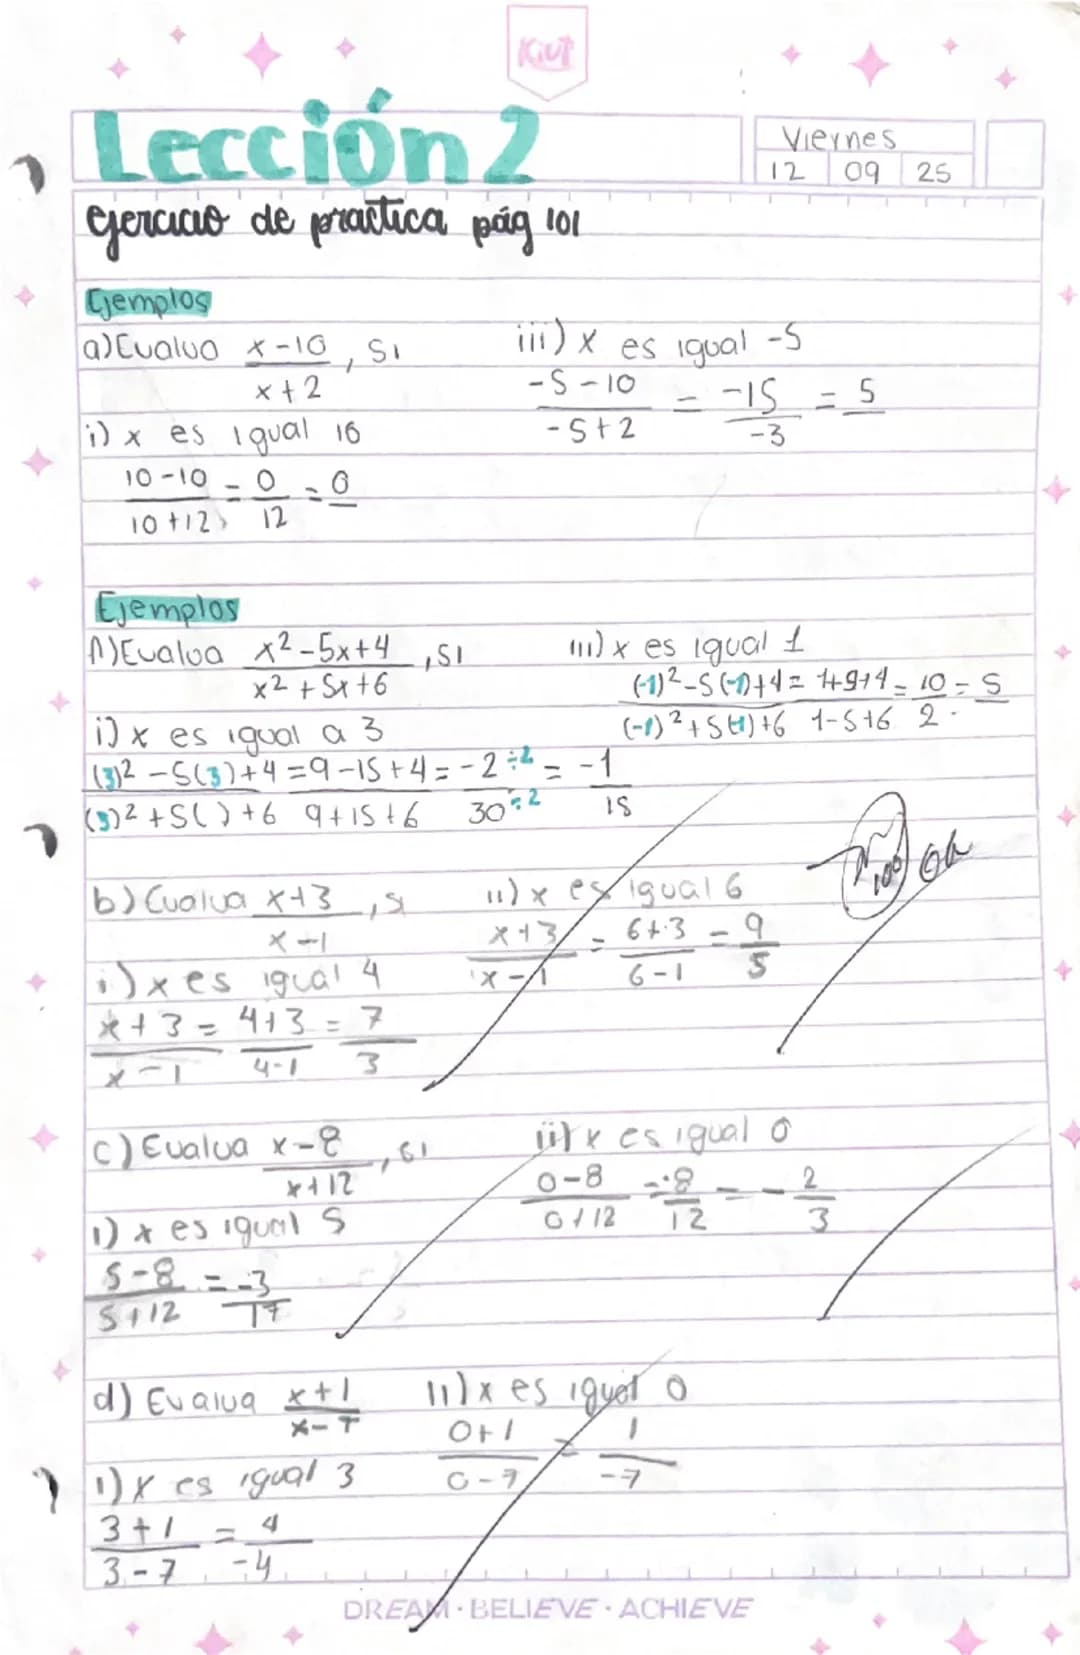 Kiut
Lección 2
Viernes
12 09 25
ejercicio de practica pág 101
Ejemplos
a) Evaluo x-10/x+2, si
i) x es igual 10
10-10/10+12 = 0/12 = 0
iii) x es igual -5
-5-10/-5+2 = -15/-3 = 5
Ejemplos
A) Evaloa x²-5x+4/x²+5x+6, si
i) x es igual a 3
(3)²-5(3)+4/(3)²+5( )+6 = 9-15+4/9+15+6 = -2÷2/30÷2 = -1/15
III) x es igual 1
(-1)²-5(-1)+4/(-1)²+5(-1)+6 = 1+9+4/1-5+6 = 10/2 = 5
b) Evalua x+3/x-1, si
i) x es igual 4
x+3/x-1 = 4+3/4-1 = 7/3
II) x es igual 6
x+3/x-1 = 6+3/6-1 = 9/5
100
c) Evalua x-8/x+12, si
I) x es igual 5
5-8/5+12 = -3/17
ii) x es igual 0
0-8/0+12 = -8/12 = -2/3
d) Evalua x+1/x-7
I) x es igual 3
3+1/3-7 = 4/-4
II) x es igual 0
0+1/0-7 = 1/-7
DREAM · BELIEVE · ACHIEVE